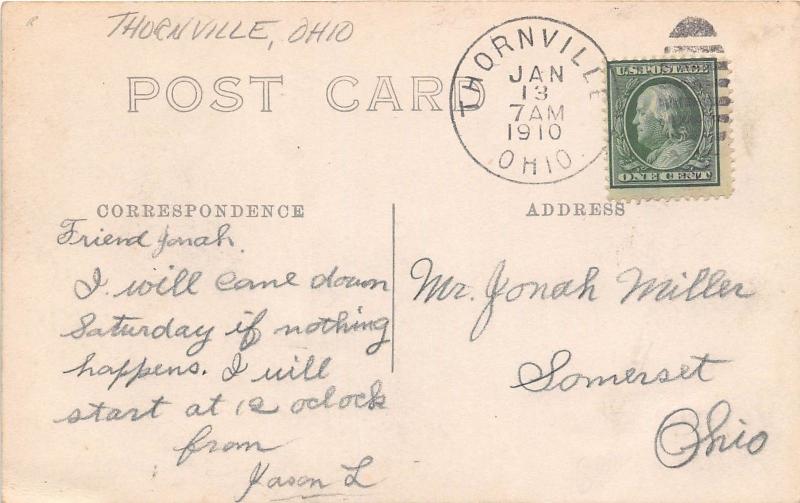 THORNVILLE, OHIO
POST CARD
THORNVILLE
JAN
13
7AM
1910
OHIO
U.S. POSTAGE
ONE CENT
CORRESPONDENCE
Friend Jonah.
I will come down
Saturday if nothing
happens. I will
start at 12 oclock
from
Jason L
ADDRESS
Mr. Jonah Miller
Somerset
Ohio